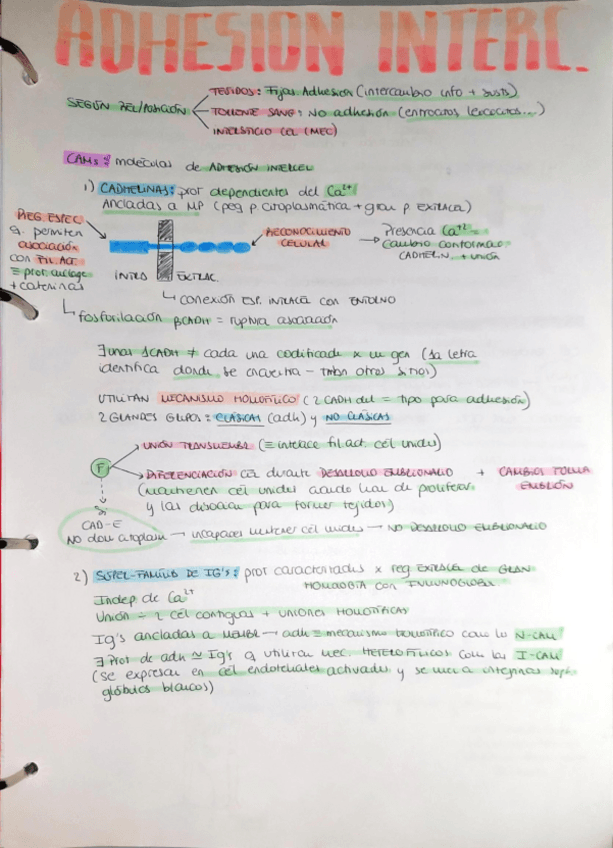 ADHESION INTERC.
TEJIDOS: Fijas Adhesion (intercambio info + susts)
SEGÚN REL/POSICIÓN
TORRENTE SANG: NO adhesión (eritrocitos leucocitos...)
INTERSTICIO CEL (MEC)
CAMs: moléculas de ADHESIÓN INTERCEL
1) CADHERINAS: prot dependientes del Ca2+
Ancladas a MP (peq p citoplasmática + gran p EXTRACEL)
REG. ESPEC
q. permiten
asociación
con FIL ACT.
≡ prot. anclaje
+ cateninas
RECONOCIMIENTO
CELULAR
→ Presencia Ca+2 =
cambio conformac
CADHERIN. + UNIÓN
INTRA EXTRAC.
↳ conexión ESP. INTRACEL CON ENTORNO
↳ fosforilación βCADH = ruptura asociación
∃ unas CADH ≠ cada una codificada x un gen (1a letra
identifica donde se encuentra - tmbn otros sitios)
UTILIZAN MECANISMO HOMOFÍLICO (2 CADH del = tipo para adhesión)
2 GRANDES GRUPOS: CLÁSICAS (adh) y NO CLÁSICAS
F
UNIÓN TRANSMEMBR (≡ interacc fil act. cél unidas)
DIFERENCIACIÓN cél durante DESARROLLO EMBRIONARIO + CAMBIOS FORMA
EMBRIÓN
(mantienen cél unidas cuando han de proliferar
y las disocian para formar tejidos)
CAD-E
NO dom citoplasm → incapaces mantener cél unidas → NO DESARROLLO EMBRIONARIO
2) SUPER-FAMILIA DE IG's: prot caracterizadas x reg EXTRACEL de GRAN
HOMOLOGÍA con INMUNOGLOB
Indep de Ca2+
Unión = 2 cél contiguas + UNIONES HOMOFÍLICAS
Ig's ancladas a MEMBR → adh ≡ mecanismo homofílico como la N-CAM
∃ Prot de adh ≃ Ig's q utilizan mec. HETEROFÍLICOS como las I-CAM
(se expresan en cél endoteliales activadas y se une a integrinas
glóbulos blancos)